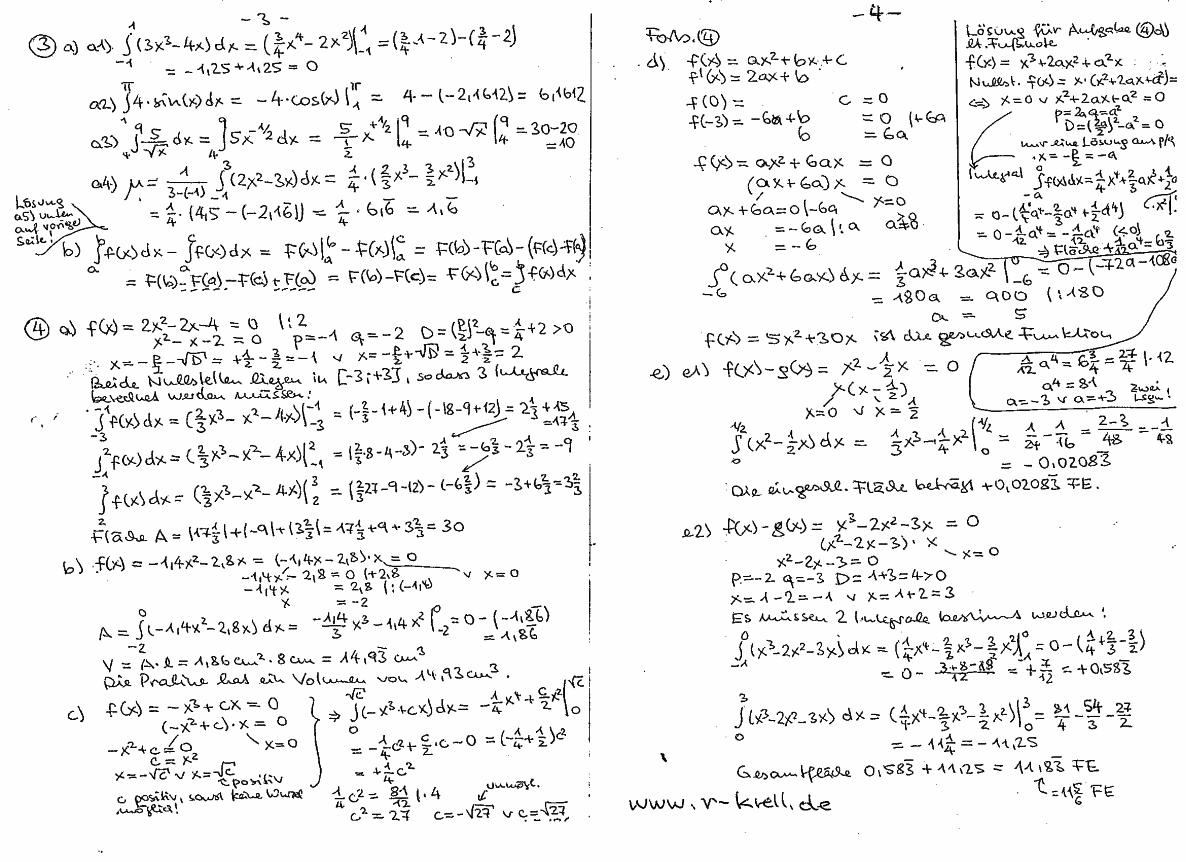 - 3 -
③ a) a1) ∫₋₁¹ (3x³-4x) dx = (3/4 x⁴ - 2x²)|₋₁¹ = (3/4·1-2)-(3/4-2)
= -1,25+1,25 = 0
a2) ∫^π 4·sin(x) dx = -4·cos(x)|₁^π = 4-(-2,1612) = 6,1612
a3) ∫₄⁹ 5/√x dx = ∫₄⁹ 5x^(-1/2) dx = 5/(1/2) x^(+1/2)|₄⁹ = 10·√x|₄⁹ = 30-20
= 10
a4) μ = 1/(3-(-1)) ∫₋₁³ (2x²-3x) dx = 1/4·(2/3 x³ - 3/2 x²)|₋₁³
= 1/4·(4,5-(-2,16̅)) = 1/4·6,6̅ = 1,6̅
Lösung
a5) unten
auf voriger
Seite!
b) ∫ₐᵇ f(x) dx - ∫ₐᶜ f(x) dx = F(x)|ₐᵇ - F(x)|ₐᶜ = F(b)-F(a)-(F(c)-F(a))
= F(b)-F(a)-F(c)+F(a) = F(b)-F(c) = F(x)|_c^b = ∫_c^b f(x) dx
④ a) f(x) = 2x²-2x-4 = 0 |:2
x²-x-2 = 0 p=-1 q=-2 D=(p/2)²-q = 1/4+2 >0
x = -p/2-√D = +1/2-3/2 = -1 ∨ x = -p/2+√D = 1/2+3/2 = 2
Beide Nullstellen liegen in [-3;+3], sodass 3 Integrale
berechnet werden müssen:
∫₋₃⁻¹ f(x) dx = (2/3 x³ - x² - 4x)|₋₃⁻¹ = (-2/3-1+4)-(-18-9+12) = 2 1/3+15
= 17 1/3
∫₋₁² f(x) dx = (2/3 x³ - x² - 4x)|₋₁² = (2/3·8-4-8)-2 1/3 = -6 2/3-2 1/3 = -9
∫₂³ f(x) dx = (2/3 x³ - x² - 4x)|₂³ = (2/3 27-9-12)-(-6 2/3) = -3+6 2/3 = 3 2/3
Fläche A = |17 1/3|+|-9|+|3 2/3| = 17 1/3+9+3 2/3 = 30
b) f(x) = -1,4x²-2,8x = (-1,4x-2,8)·x = 0
-1,4x-2,8 = 0 |+2,8 ∨ x=0
-1,4x = 2,8 |:(-1,4)
x = -2
A = ∫₋₂⁰ (-1,4x²-2,8x) dx = -1,4/3 x³ - 1,4x²|₋₂⁰ = 0-(-1,86̅)
= 1,86̅
V = A·l = 1,86 cm²·8cm = 14,93̅ cm³
Die Praline hat ein Volumen von 14,93 cm³.
c) f(x) = -x³+cx = 0
(-x²+c)·x = 0
-x²+c = 0 x=0
c = x²
x = -√c ∨ x = √c
c positiv
c positiv, sonst keine Wurzel
möglich!
⇒ ∫₀^√c (-x³+cx) dx = -1/4 x⁴ + c/2 x²|₀^√c
= -1/4 c² + c/2·c - 0 = (-1/4+1/2)c²
= +1/4 c²
1/4 c² = 81/12 |·4 unmögl.
c² = 27 c = -√27 ∨ c = √27
- 4 -
Forts. ④
d) f(x) = ax²+bx+c
f'(x) = 2ax+b
f(0) = c = 0
f(-3) = -6a+b = 0 |+6a
b = 6a
f(x) = ax²+6ax = 0
(ax+6a)x = 0
x=0
ax+6a = 0 |-6a
ax = -6a |:a a≠0
x = -6
∫₋₆⁰ (ax²+6ax) dx = 1/3 ax³ + 3ax²|₋₆⁰ = 0-(-72a-108a
= 180a = 900 |:180
a = 5
f(x) = 5x²+30x ist die gesuchte Funktion
Lösung für Aufgabe ④d)
lt. Fußnote
f(x) = x³+2ax²+a²x
Nullst. f(x) = x·(x²+2ax+a²)=
⇔ x=0 ∨ x²+2ax+a² = 0
p=2a q=a²
D=(2a/2)²-a² = 0
nur eine Lösung aus p/q
x = -p/2 = -a
Integral ∫₋ₐ⁰ f(x) dx = 1/4 x⁴ + 2/3 ax³ + 1/2 a
·x²|
= 0-(1/4 a⁴ - 2/3 a⁴ + 1/2 a⁴)
= 0-1/12 a⁴ = -1/12 a⁴ (<0)
⇒ Fläche +1/12 a⁴ = 6 3/4
1/12 a⁴ = 6 3/4 = 27/4 |·12
a⁴ = 81
a=-3 ∨ a=+3 zwei
Lösgn!
e) e1) f(x)-g(x) = x²-1/2 x = 0
x(x-1/2)
x=0 ∨ x=1/2
∫₀^(1/2) (x²-1/2 x) dx = 1/3 x³ - 1/4 x²|₀^(1/2) = 1/24-1/16 = (2-3)/48 = -1/48
= -0,02083̅
Die eingeschl. Fläche beträgt +0,02083̅ FE.
e2) f(x)-g(x) = x³-2x²-3x = 0
(x²-2x-3)·x
x=0
x²-2x-3 = 0
p=-2 q=-3 D=1+3=4>0
x = 1-2 = -1 ∨ x = 1+2 = 3
Es müssen 2 Integrale bestimmt werden:
∫₋₁⁰ (x³-2x²-3x) dx = (1/4 x⁴ - 2/3 x³ - 3/2 x²)|₋₁⁰ = 0-(1/4+2/3-3/2)
= 0-(3+8-18)/12 = +7/12 = +0,583̅
∫₀³ (x³-2x²-3x) dx = (1/4 x⁴ - 2/3 x³ - 3/2 x²)|₀³ = 81/4-54/3-27/2
= -11 1/4 = -11,25
Gesamtfläche 0,583̅+11,25 = 11,83̅ FE
= 11 5/6 FE
www.r-krell.de